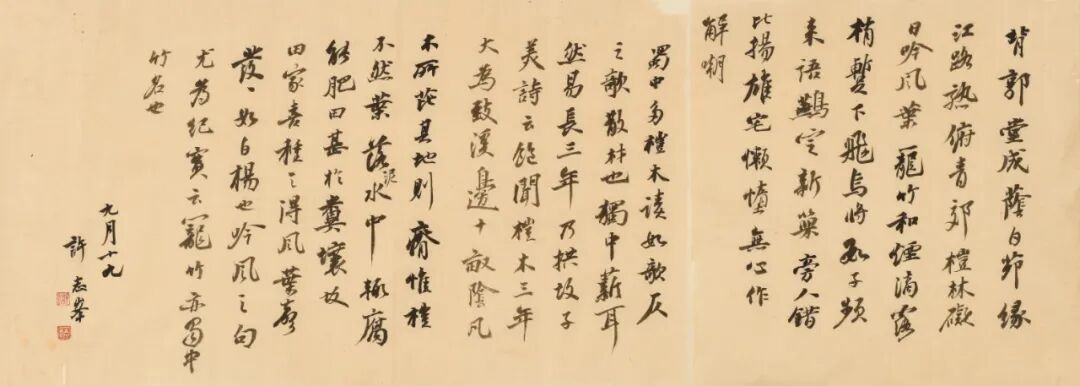 背郭堂成蔭白茆緣
江路熟俯青郊榿林礙
日吟風葉籠竹和煙滴露
梢暫下飛烏將數子頻
来語鷰定新巢旁人錯
比揚雄宅懶惰無心作
解嘲
蜀中多榿木讀如欹仄
之欹散材也獨中薪耳
然易長三年乃拱故子
美詩云飽聞榿木三年
大為致溪邊十畝陰凡
木所芘其地則瘠惟榿
不然葉落泥水中輒腐
能肥田甚於糞壤故
田家喜種之得風葉聲
發〻如白楊也吟風之句
尤為紀實云籠竹亦蜀中
竹名也
九月十九
許志